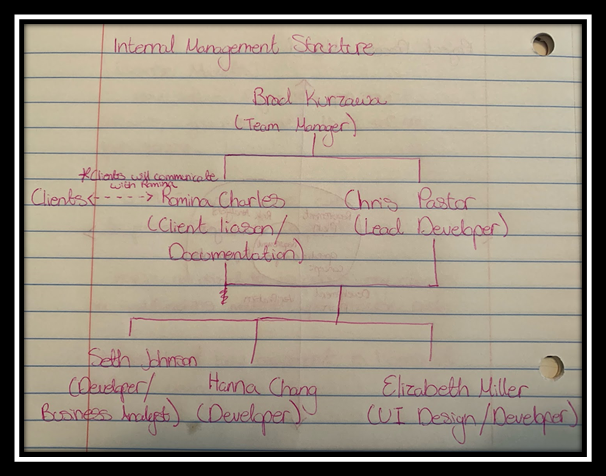 Internal Management Structure
Brad Kurzawa
(Team Manager)
*Clients will communicate
with Romina
Clients <----> Romina Charles
(Client liason/
Documentation)
Chris Pastor
(Lead Developer)
Seth Johnson
(Developer/
Business Analyst)
Hanna Chang
(Developer)
Elizabeth Miller
(UI Design/Developer)